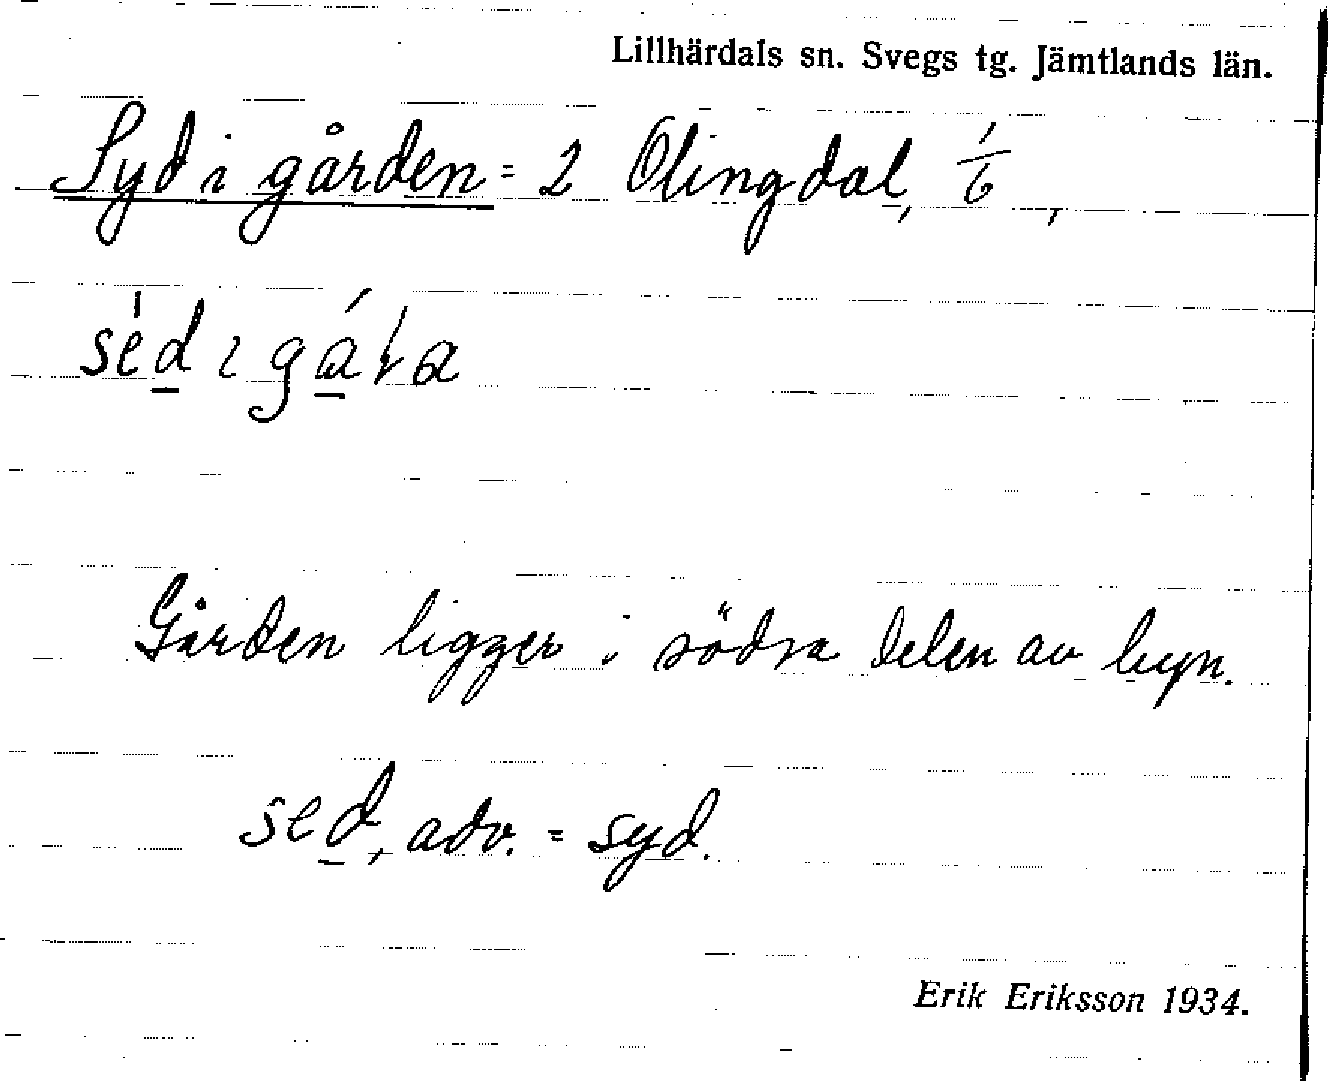 Lillhärdals sn. Svegs tg. Jämtlands län.
Syd i gården = 2 Olingdal, 1/6,
sed ɩ
Gården ligger i södra delen av byn.
sed, adv. = syd.
Erik Eriksson 1934.